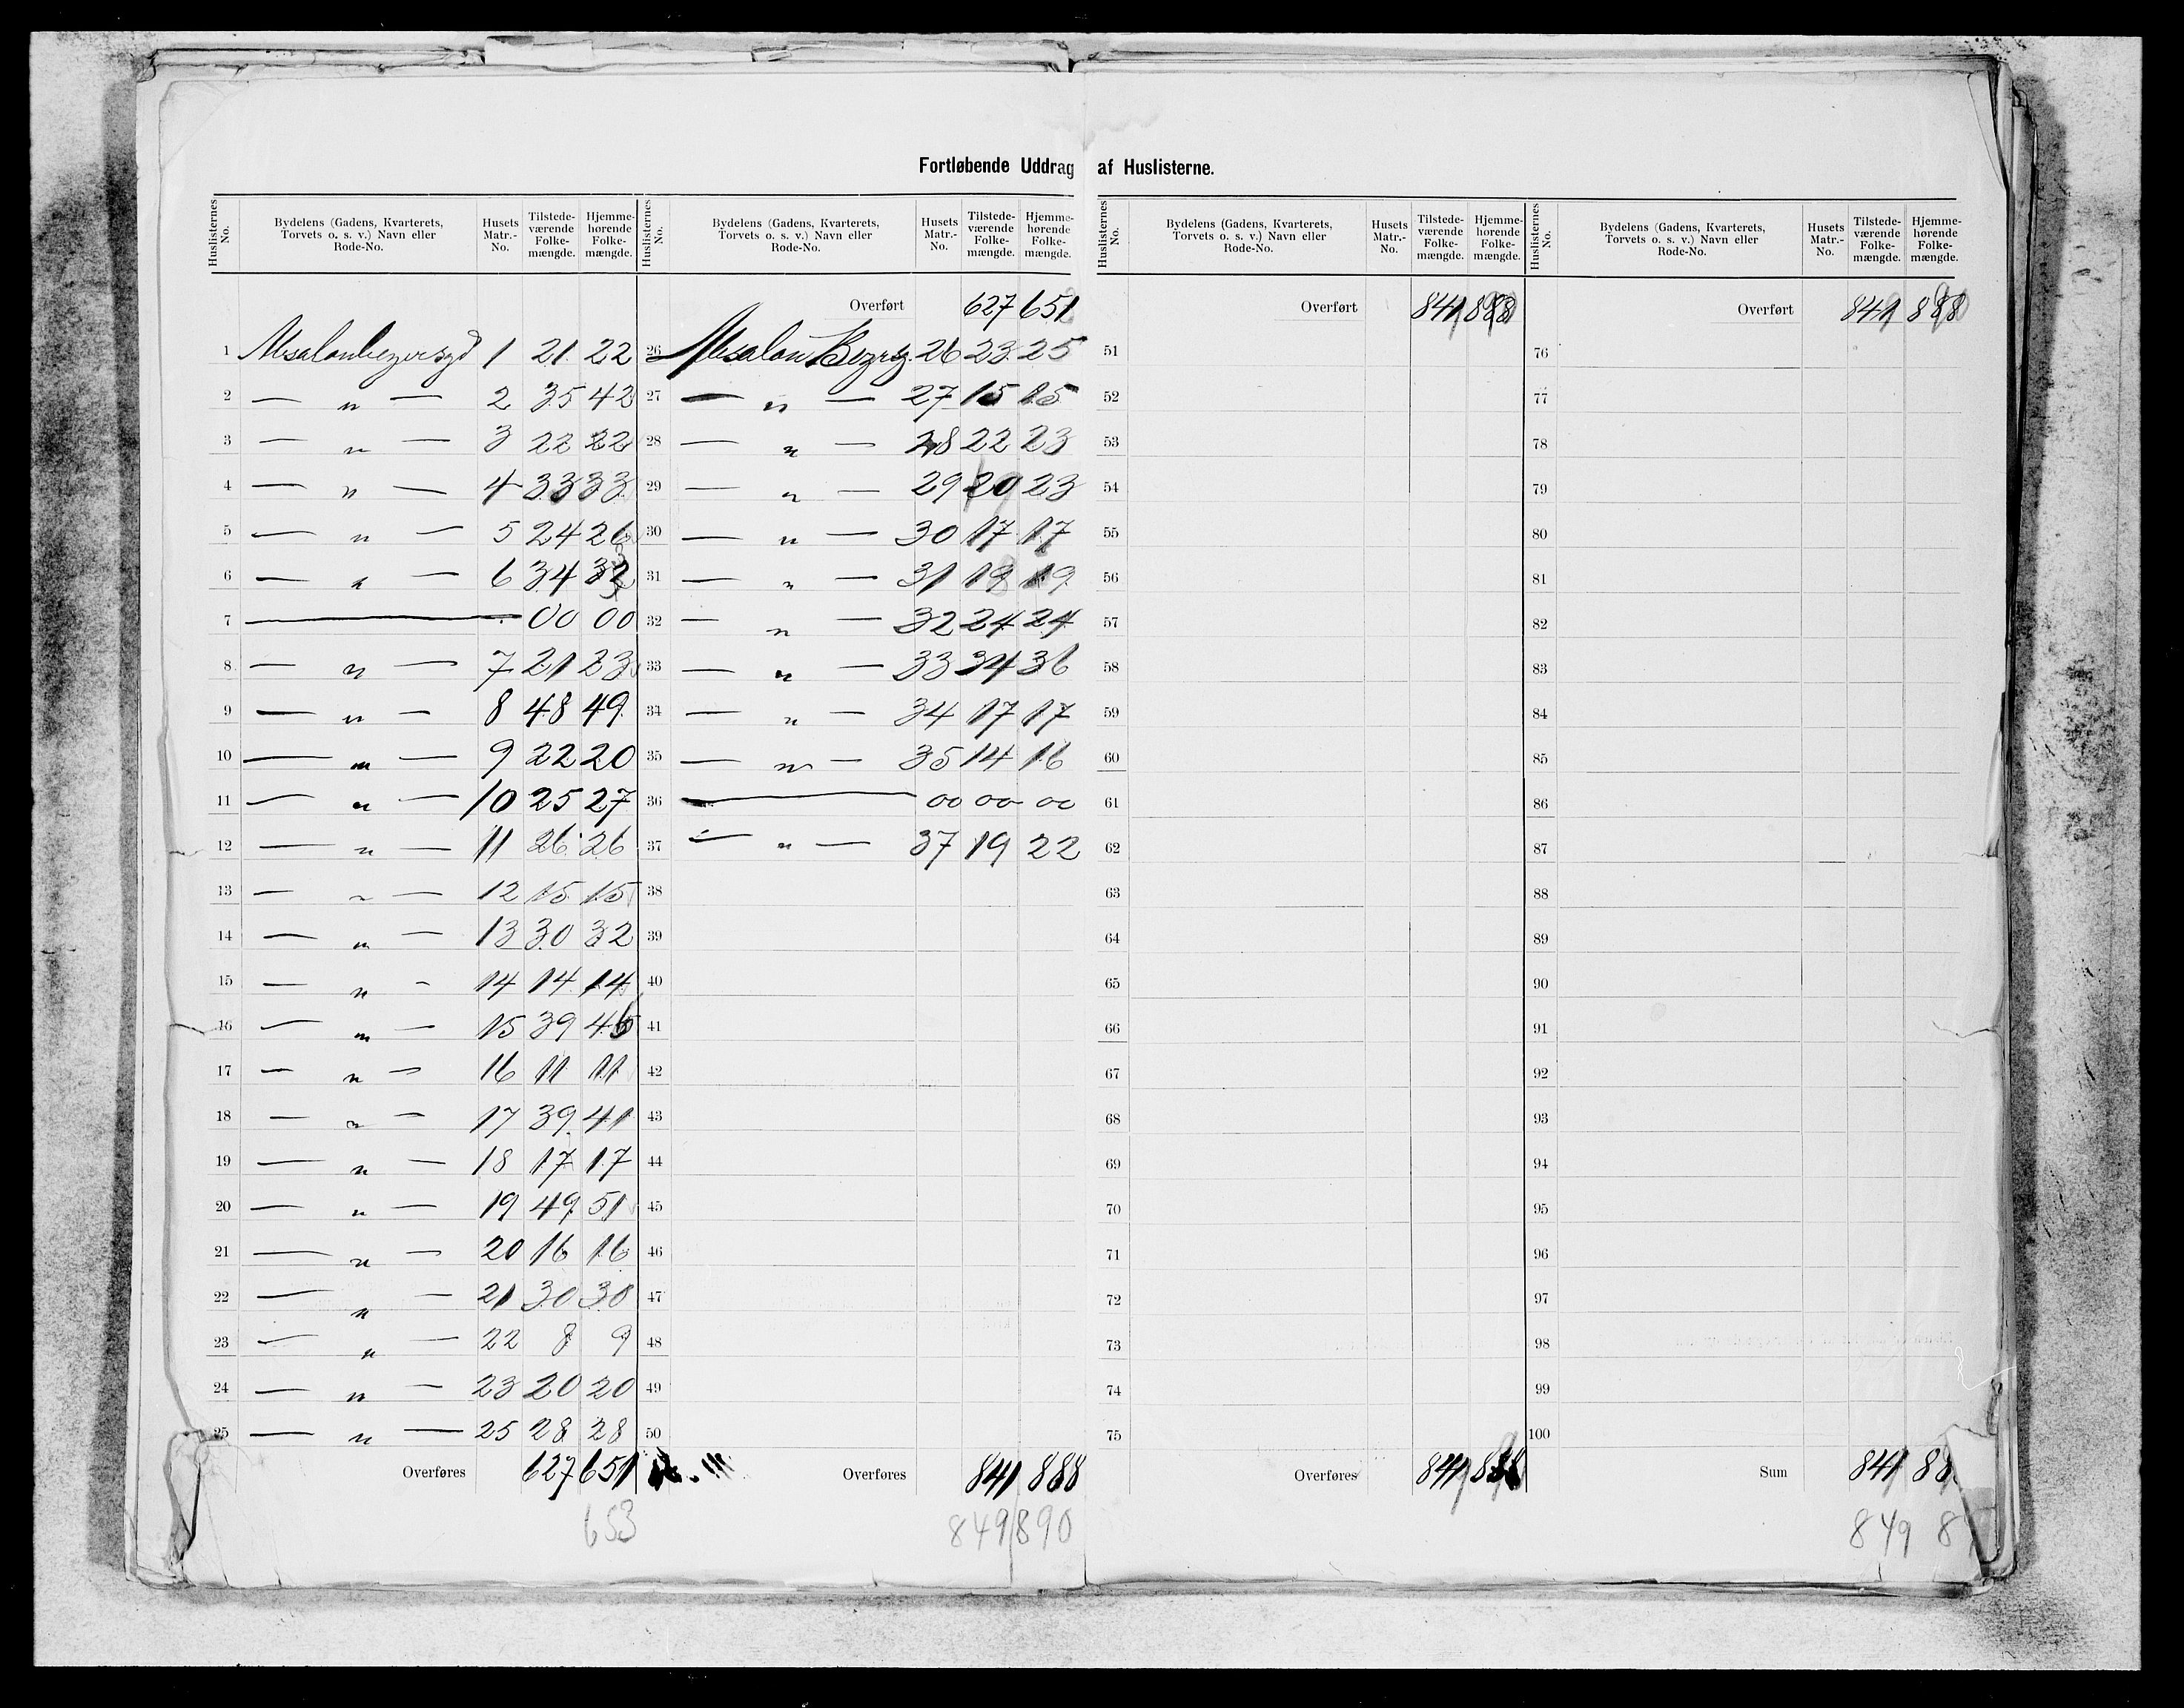 Fortløbende Uddrag af Huslisterne.
Huslisternes No. | Bydelens (Gadens, Kvarterets, Torvets o. s. v.) Navn eller Rode-No. | Husets Matr.-No. | Tilstedeværende Folkemængde. | Hjemmehørende Folkemængde.
1 Absalonbezersgd 1 21 22
2 — " — 2 35 42
3 — " — 3 22 22
4 — " — 4 33 33
5 — " — 5 24 26
6 — " — 6 34 32
7 — 00 00
8 — " — 7 21 23
9 — " — 8 48 49
10 — " — 9 22 20
11 — " — 10 25 27
12 — " — 11 26 26
13 — " — 12 15 15
14 — " — 13 30 32
15 — " — 14 14 14
16 — " — 15 39 45
17 — " — 16 11 11
18 — " — 17 39 41
19 — " — 18 17 17
20 — " — 19 49 51
21 — " — 20 16 16
22 — " — 21 30 30
23 — " — 22 8 9
24 — " — 23 20 20
25 — " — 25 28 28
Overføres 627 651
653
Huslisternes No. | Bydelens (Gadens, Kvarterets, Torvets o. s. v.) Navn eller Rode-No. | Husets Matr.-No. | Tilstedeværende Folkemængde. | Hjemmehørende Folkemængde.
Overført 627 651
26 Absalon 26 23 25
27 — " — 27 15 15
28 — " — 28 22 23
29 — " — 29 20 23
30 — " — 30 17 17
31 — " — 31 18 19
32 — " — 32 24 24
33 — " — 33 34 36
34 — " — 34 17 17
35 — " — 35 14 16
36 — 00 00 00
37 — " — 37 19 22
38
39
40
41
42
43
44
45
46
47
48
49
50
Overføres 841 888
849 890
Huslisternes No. | Bydelens (Gadens, Kvarterets, Torvets o. s. v.) Navn eller Rode-No. | Husets Matr.-No. | Tilstedeværende Folkemængde. | Hjemmehørende Folkemængde.
Overført 841 888
51
52
53
54
55
56
57
58
59
60
61
62
63
64
65
66
67
68
69
70
71
72
73
74
75
Overføres 841 888
Huslisternes No. | Bydelens (Gadens, Kvarterets, Torvets o. s. v.) Navn eller Rode-No. | Husets Matr.-No. | Tilstedeværende Folkemængde. | Hjemmehørende Folkemængde.
Overført 841 888
76
77
78
79
80
81
82
83
84
85
86
87
88
89
90
91
92
93
94
95
96
97
98
99
100
Sum 841 88
849 8